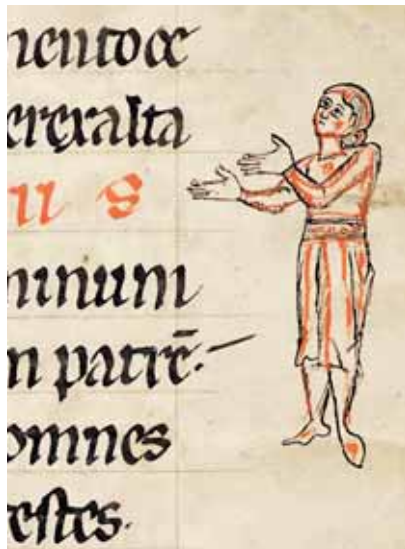 mentoꝝ
erexalta
us
minum
m patrē.
omnes
estes.